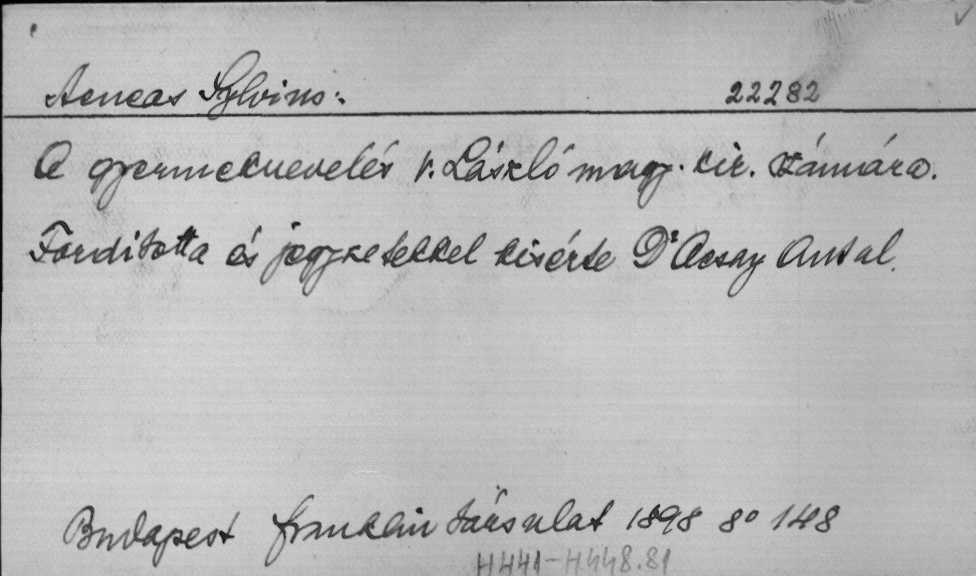 Aeneas Sylvius: 22282
A gyermeknevelés V. László magy. kir. számára.
Fordította és jegyzetekkel kisérte Dr Acsay Antal.
Budapest Franklin társulat 1898 8° 148
H441-H448.81